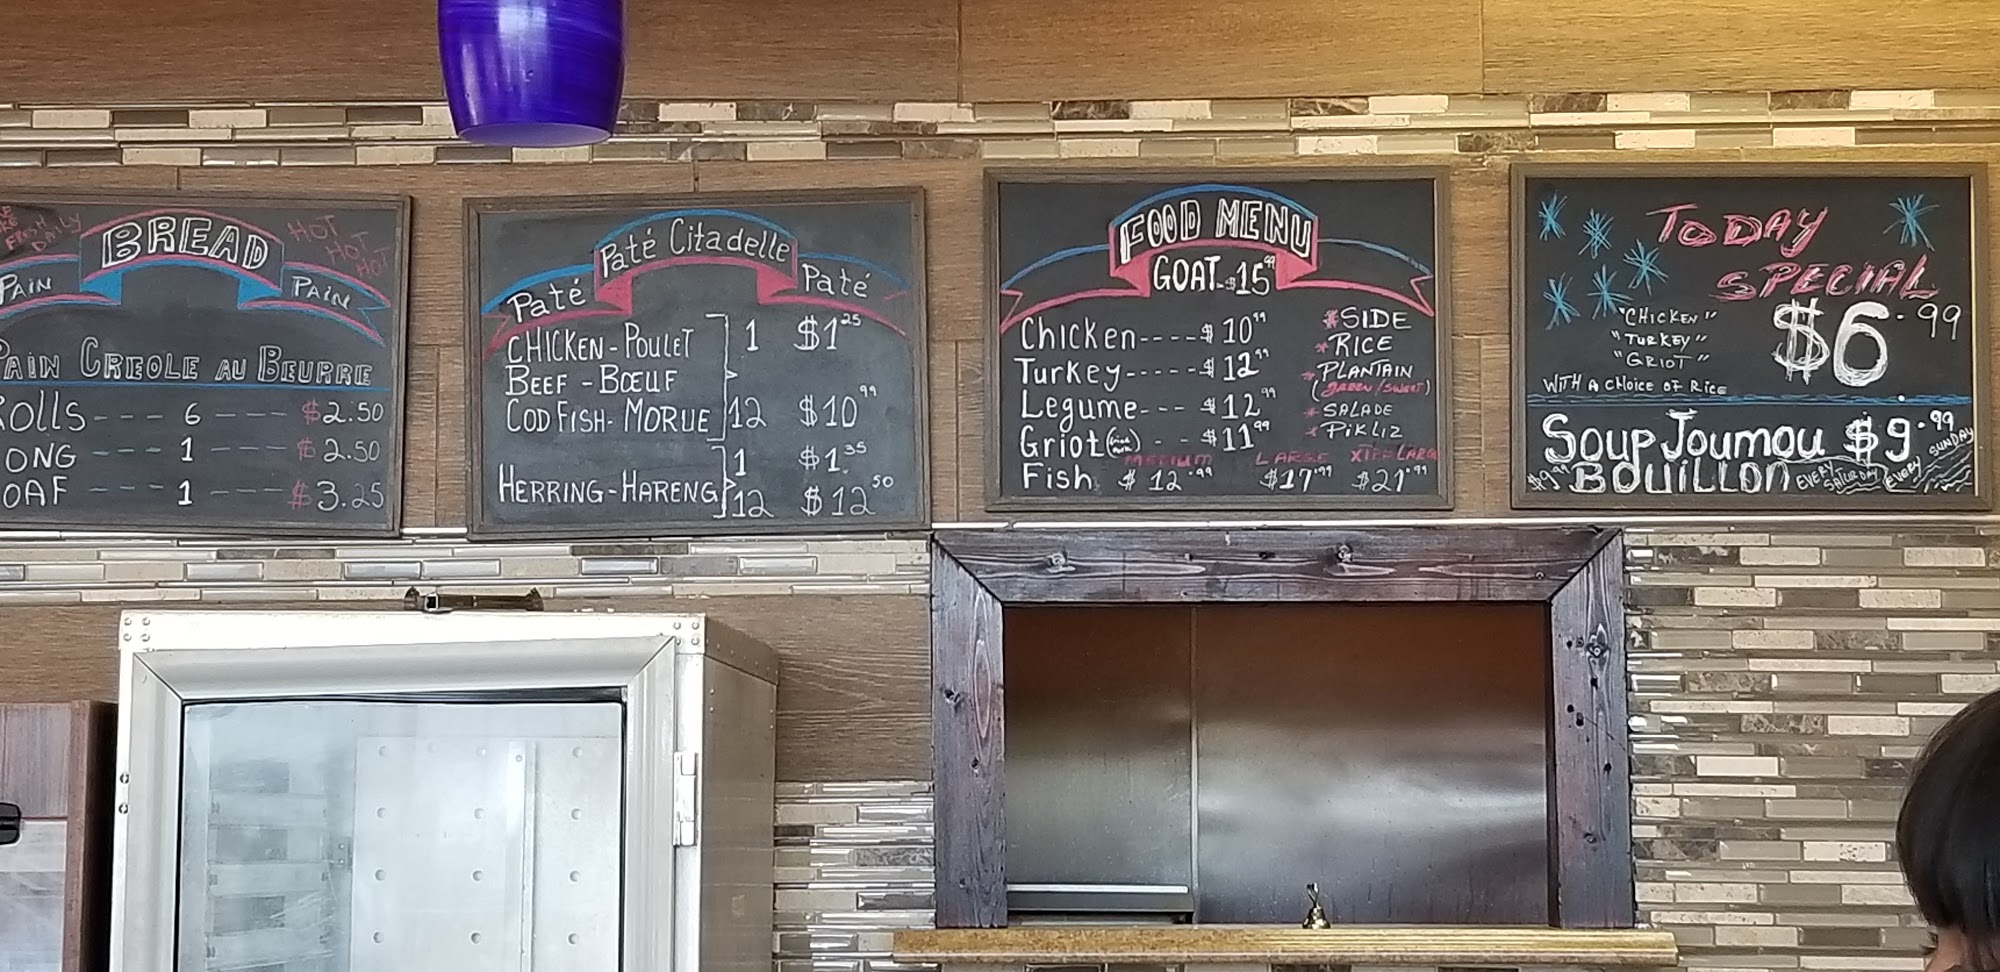 FRESH
DAILY
BREAD
HOT
HOT
HOT
PAIN
PAIN
PAIN CREOLE AU BEURRE
ROLLS --- 6 --- $2.50
ONG --- 1 --- $2.50
OAF --- 1 --- $3.25
Paté Citadelle
Paté
Paté
CHICKEN - POULET 1 $1.25
BEEF - BŒUF
COD FISH - MORUE 12 $10.99
1 $1.35
HERRING - HARENG
12 $12.50
FOOD MENU
GOAT - $15.99
Chicken ---- $10.99
Turkey ----- $12.99
Legume --- $12.99
Griot -- $11.99
MEDIUM LARGE
Fish $12.99 $17.99 $21.99
*SIDE
*RICE
*PLANTAIN
(GREEN/SWEET)
*SALADE
*PiKLIZ
TODAY
SPECIAL
"CHICKEN"
"TURKEY"
"GRIOT"
$6.99
WITH A CHOICE OF RICE
SOUP JOUMOU $9.99
EVERY SUNDAY
$9.99 BOUILLON EVERY SATURDAY